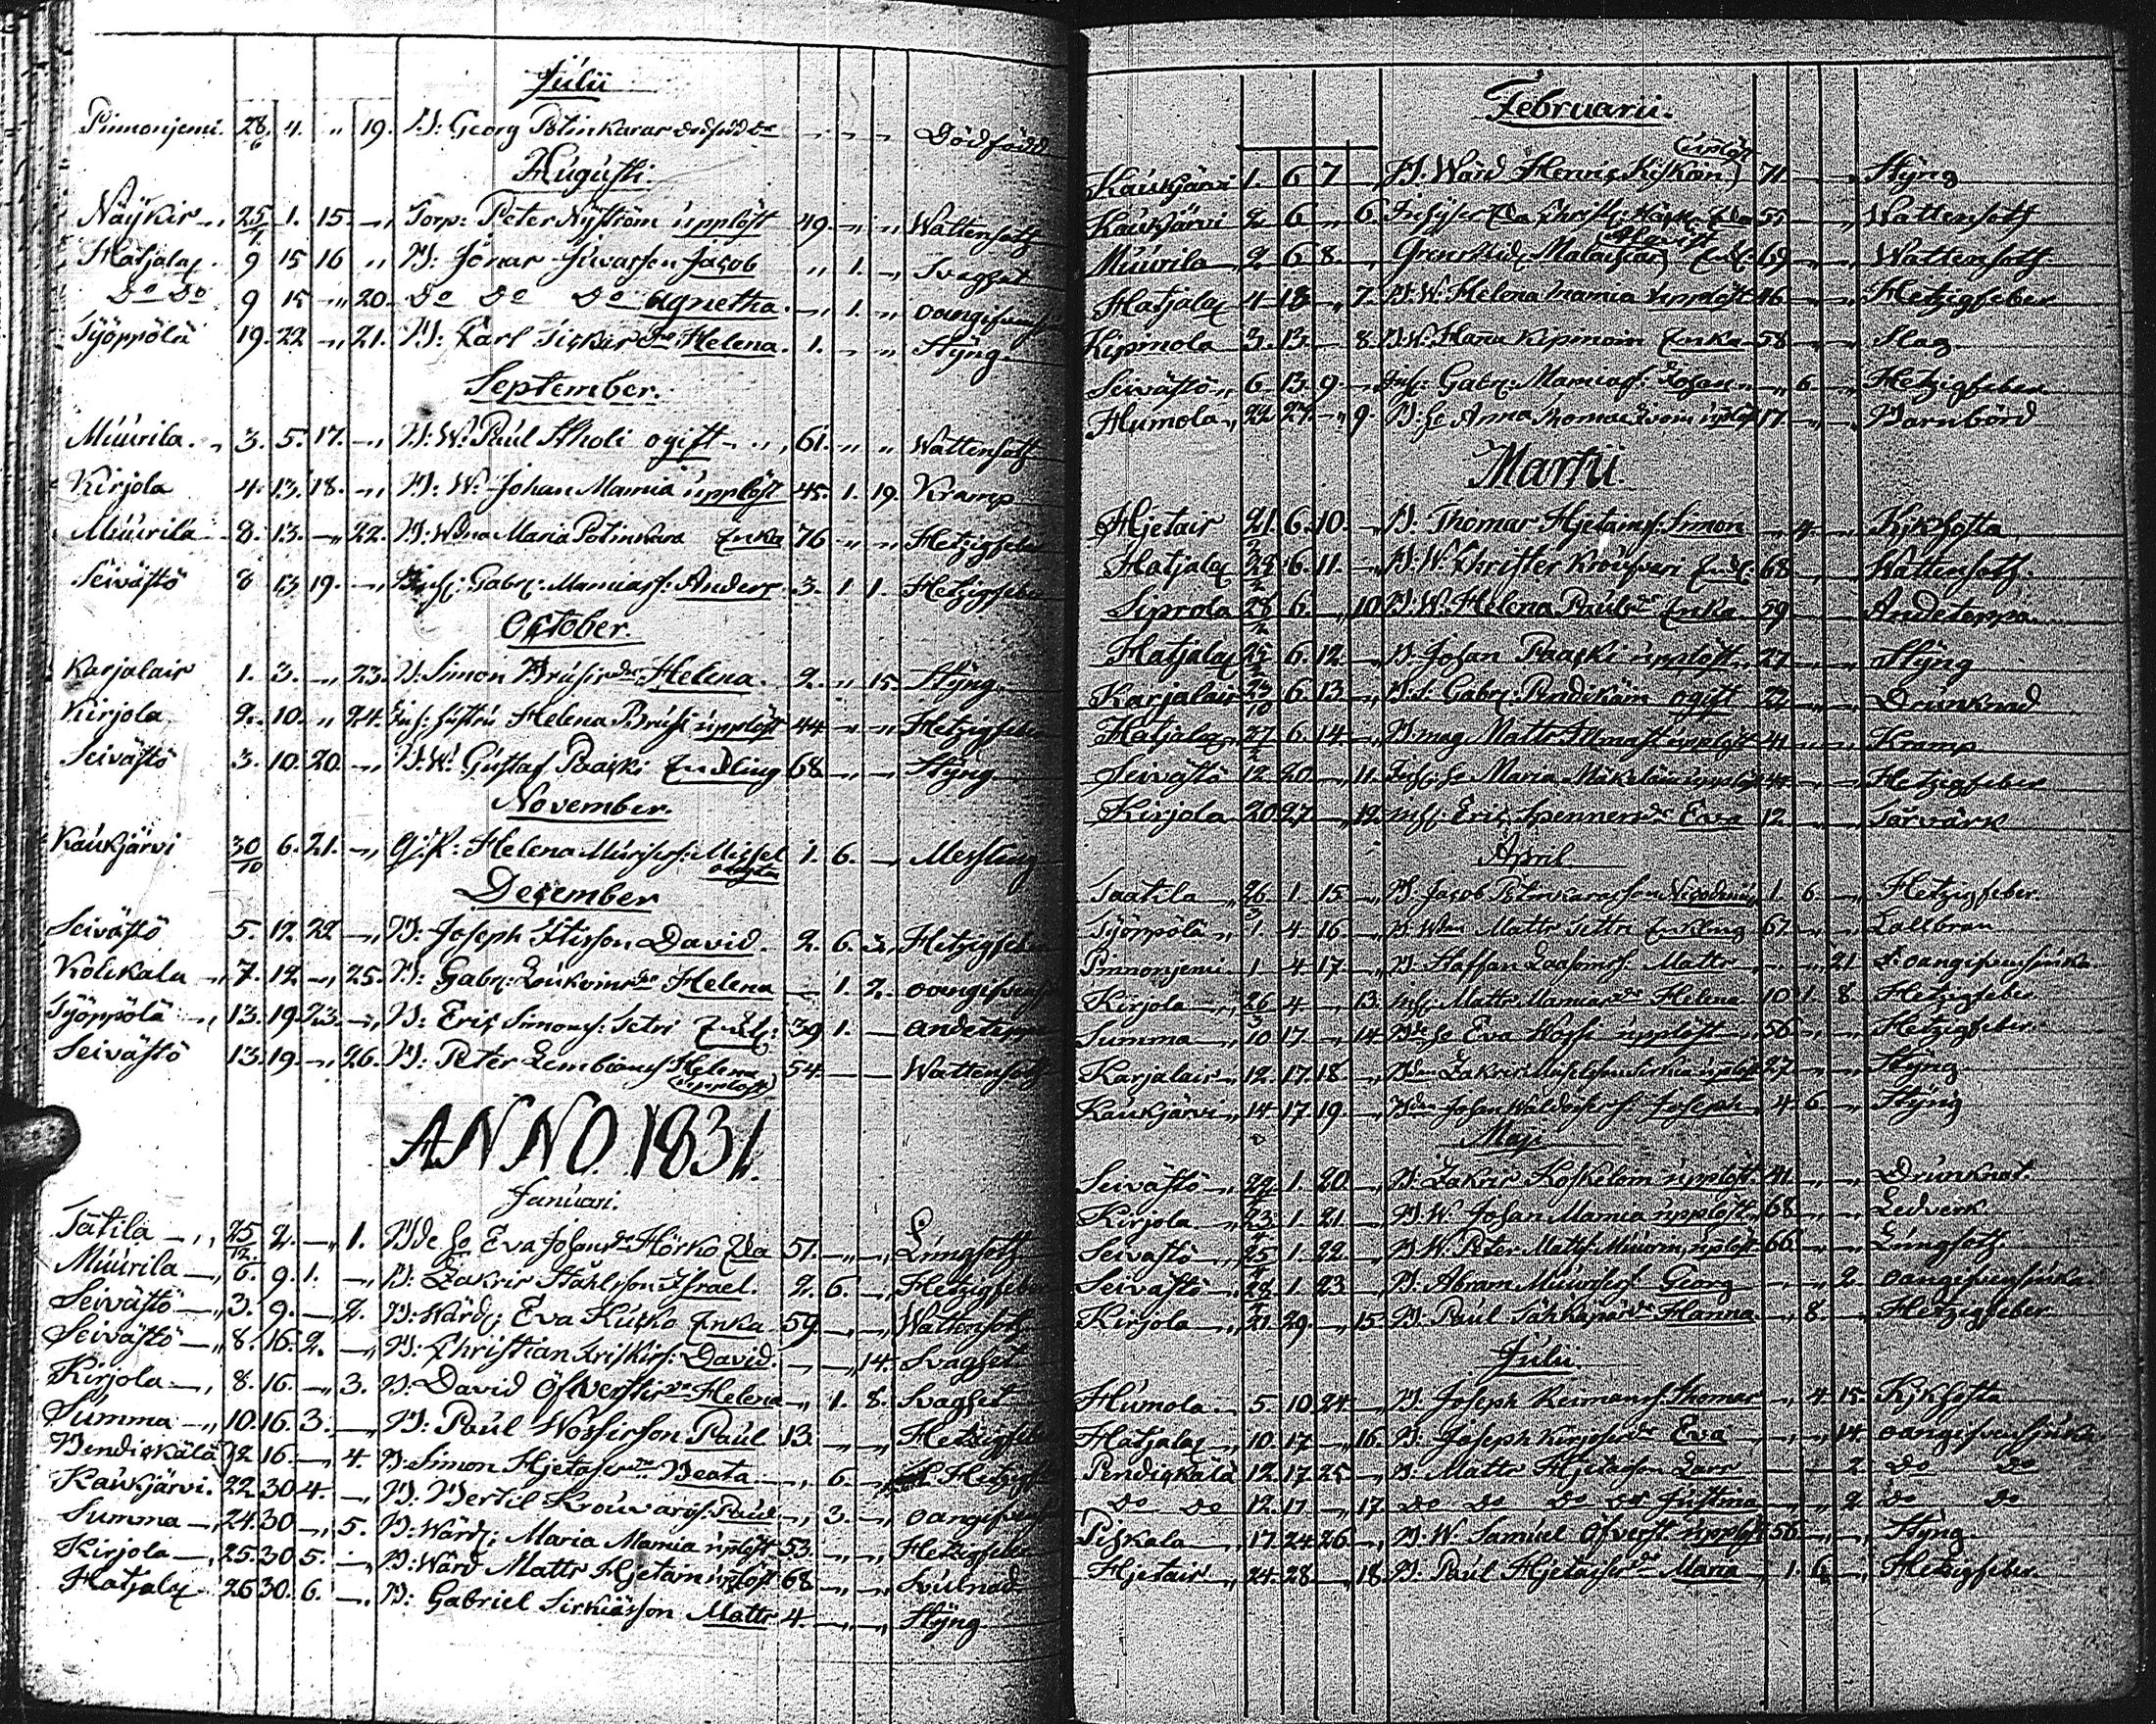 Julii
Pinnonjemi. 28/6 4. " 19. B: Georg Potinkaras dödfödd Dr - - - Dödfödd
Augusti.
Näykir 25/7 1. 15. - Torp: Peter Nyström upplöst 49. - - Wattensot
Hatjalax. 9 15 16 " B: Jonas Juvasson Jacob " 1. - Svaghet
Do Do 9 15 - 20. Do Do Do Agnetha. - 1. - oangifven
Työppölä 19. 22 - 21. B: Carl Sickir Dr Helena. 1. - - Styng
September.
Muurila. 3. 5. 17. - B: W: Paul Aholi ogift 61. " " Wattensot
Kirjola 4. 13. 18. - B: W: Johan Mamia upplöst 45. 1. 19. Kramp
Muurila 8. 13. - 22. B: Wdna Maria Potinkara Enka 76 " " Hetzigfeber
Seivästö 8 13 19. - Inh: Gabr: Mamiass: Anders 3. 1 1. Hetzigfeber
October.
Karjalais 1. 3. - 23. B. Simon Brusis Dr Helena. 2. " 15. Styng.
Kirjola 2. 10. " 24. Inh: hustru Helena Brusi upplöst 44 " " Hetzigfeber
Seivästö 3. 10. 20. - B: W: Gustaf Paacki Enkling 68 - - Styng
November.
Kaukjärvi 30/10 6. 21. - Helena Missel oäkta 1. 6. - Messling
December
Seivästö 5. 12. 22 - B: Joseph David. 2. 6. 3. Hetzigfeber
Kolckala 7. 12 - 25. B: Gabr: Loukoins Dr Helena - 1. 2. oangifven
Työppölä 13. 19. 23. - B: Eric Simons: Tetri Enkl: 39 1. - andetäppa
Seivästö 13. 19. - 26. B: Peter Lembions Helena 54. - - Wattensot
(upplöst)
ANNO. 1831.
Januari.
Tatila 25/12. 2. - 1. Bde h: Eva Johans Dr Hörkö Eka 51. - - Lungsot
Muurila 6. 9. 1. - B: Zakris Ståhlsson Israel. 2. 6. - Hetzigfeber
Seivästö 3. 9. - 2. B: Wärd: Eva Kucko Enka 59 - - Wattensot
Seivästö 8. 16. 2. - B: Christian Kriskirs: David. - - 14. Svaghet
Kirjola 8. 16. - 3. B: David Öfverstis Dr Helena - 1. 8. Svaghet
Summa 10. 16. 3. - B: Paul Wossirson Paul 13. - - Hetzigfeber
Bendickälä 12 16 - 4. B: Simon Hjetaser Dr Beata - 6. - Hetzigf
Kaukjärvi. 22. 30 4. - B: Bertil Krouvars: Paul - 3. - oangifven
Summa 24. 30 - 5. B: Wärd: Maria Mamia uplöst 53. - - Hetzigfeber
Kirjola 25. 30. 5. - B: Wärd Matts Hjetain uplöst 68 - - Svulnad
Hatjalax 26 30. 6. - B: Gabriel Sirkiässon Matts 4. - - Styng
Februarii.
Kaukjärvi 1. 6 7 - B. Wärd Henric Kiskoin 71 - - Styng
Kaukjärvi 2 6 - 6. 55 - - Wattensot
Muurila 2. 6 8. - Malachias Enkl: 69 - - Wattensot
Hatjalax 4 13 - 7. B. W. Helena Mamia upplöst 46 - - Hetzigfeber
Kipinola 3. 13. - 8. B. W. Hanna Kipinoin Enka 58 - - Slag
Seivästö 6 13. 9 - Inh: Gabr: Mamiass: Johan - 6 - Hetzigfeber
Humola 22 27. - 9. B: he Anna Thomas 17 - - Barnbörd
Martii.
Hjetais 21/2 6. 10. - B: Thomas Hjetains: Simon - 4. - Kikhosta
Hatjalax 24/2 6. 11. - B. W. Christer Krouvari Enkl: 68 - - Wattensot.
Siprola 28/2 6 - 10 B. W. Helena Pauls Dr Enka 59 - - Andetäppa
Hatjalax 25/2 6. 12 - B. Johan Paacki upplöst 27 - - Styng
Karjalais 23/10 6. 13 - B. S: Gabr: Pendikäin ogift 22 - - Drunknad
Hatjalax 27/2 6. 14. - B. mag Matts upplöst 41 - - Kramp
Seivästö 12. 20. - 11. Inh: he Maria upplöst - - Hetzigfeber
Kirjola 20 27 - 12. Inh: Eric Spenners Dr Eva 12 - - Torvärk
April
Taatila 26/3 1. 15. - B. Jacob Potinkarasson Nicodemus 1 6 - Hetzigfeber
Työppölä 1. 4. 16 - B. Wdn Matts Tettri Enkling 67 - - Kallbran
Pinnonjemi 1 4 17. - B. Staffan Laasoins: Matts - - 21 oangifvensjuka
Kirjola 26/3 4. - 13. Inh: Matts Mamias Dr Helena 10 1. 8. Hetzigfeber.
Summa 10. 17. - 14 Bde he Eva Wossi upplöst 56 - - Hetzigfeber.
Karjalais 12. 17. 18 - Zakris uplöst 27 - - Styng
Kaukjärvi 14. 17 19. - Johan Joseph 4. 6 - Styng
Maji
Seivästö 29/4 1. 20. - B. Zakris Koskelain upplöst 41. - - Drunknat.
Kirjola 23/4 1. 21. - B. W. Johan Mamia upplöst 68 - - Ledverk
Seivästö 25/4 1. 22. - B. W. Peter Matts: upplöst 66 - - Lungsot
Seivästö 28/4 1. 23 - B. Abram Georg - - 2. oangifvensjuka
Kirjola 21/4 29. - 15 B. Paul Dr Hanna - 8. - Hetzigfeber
Julii
Humola 5. 10 24 - B. Joseph Reimans: Thomas - 4. 15. Kikhosta
Hatjalax 10. 17 - 16. B. Joseph Dr Eva - - 14. oangifvensjuka
Pendickälä 12. 17. 25 - B. Matts Hjetasson Lars - - 2 Do Do
Do Do 12. 17 - 17 Do Do Do Dr Justina - - 2 Do Do
Piskala 17. 24 26 - B. W. Samuel Öfverst upplöst 56 - - Styng
Hjetais 24. 28 - 18 B. Paul Hjetaiser Dr Maria 1. 6. - Hetzigfeber.